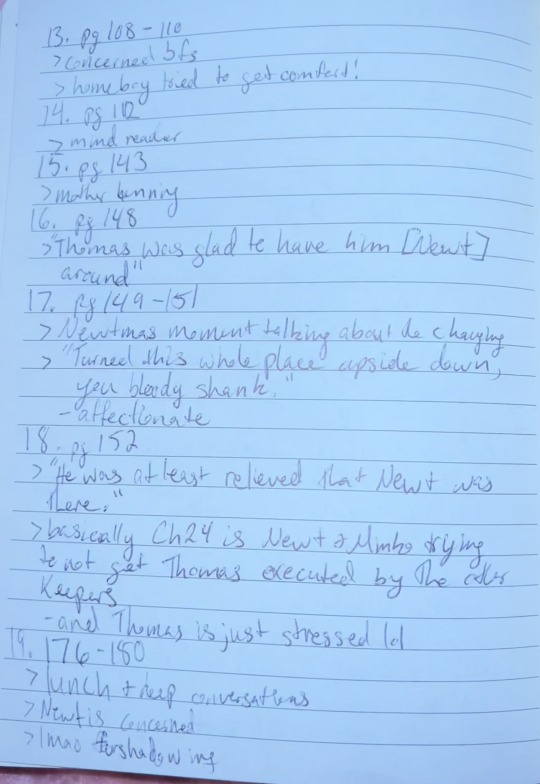 13. pg 108-110
> concerned bfs
> homeboy tried to get comfort!
14. pg 112
> mind reader
15. pg 143
> mother henning
16. pg 148
> "Thomas was glad to have him [Newt]
around"
17. pg 149-151
> Newtmas moment talking about de changing
> "Turned this whole place upside down,
you bloody shank."
- affectionate
18. pg 152
> "He was at least relieved that Newt was
there."
> basically Ch24 is Newt & Minho trying
to not get Thomas executed by the other
Keepers
- and Thomas is just stressed lol
19. 176-180
> lunch + deep conversations
> Newt is concerned
> lmao forshadowing